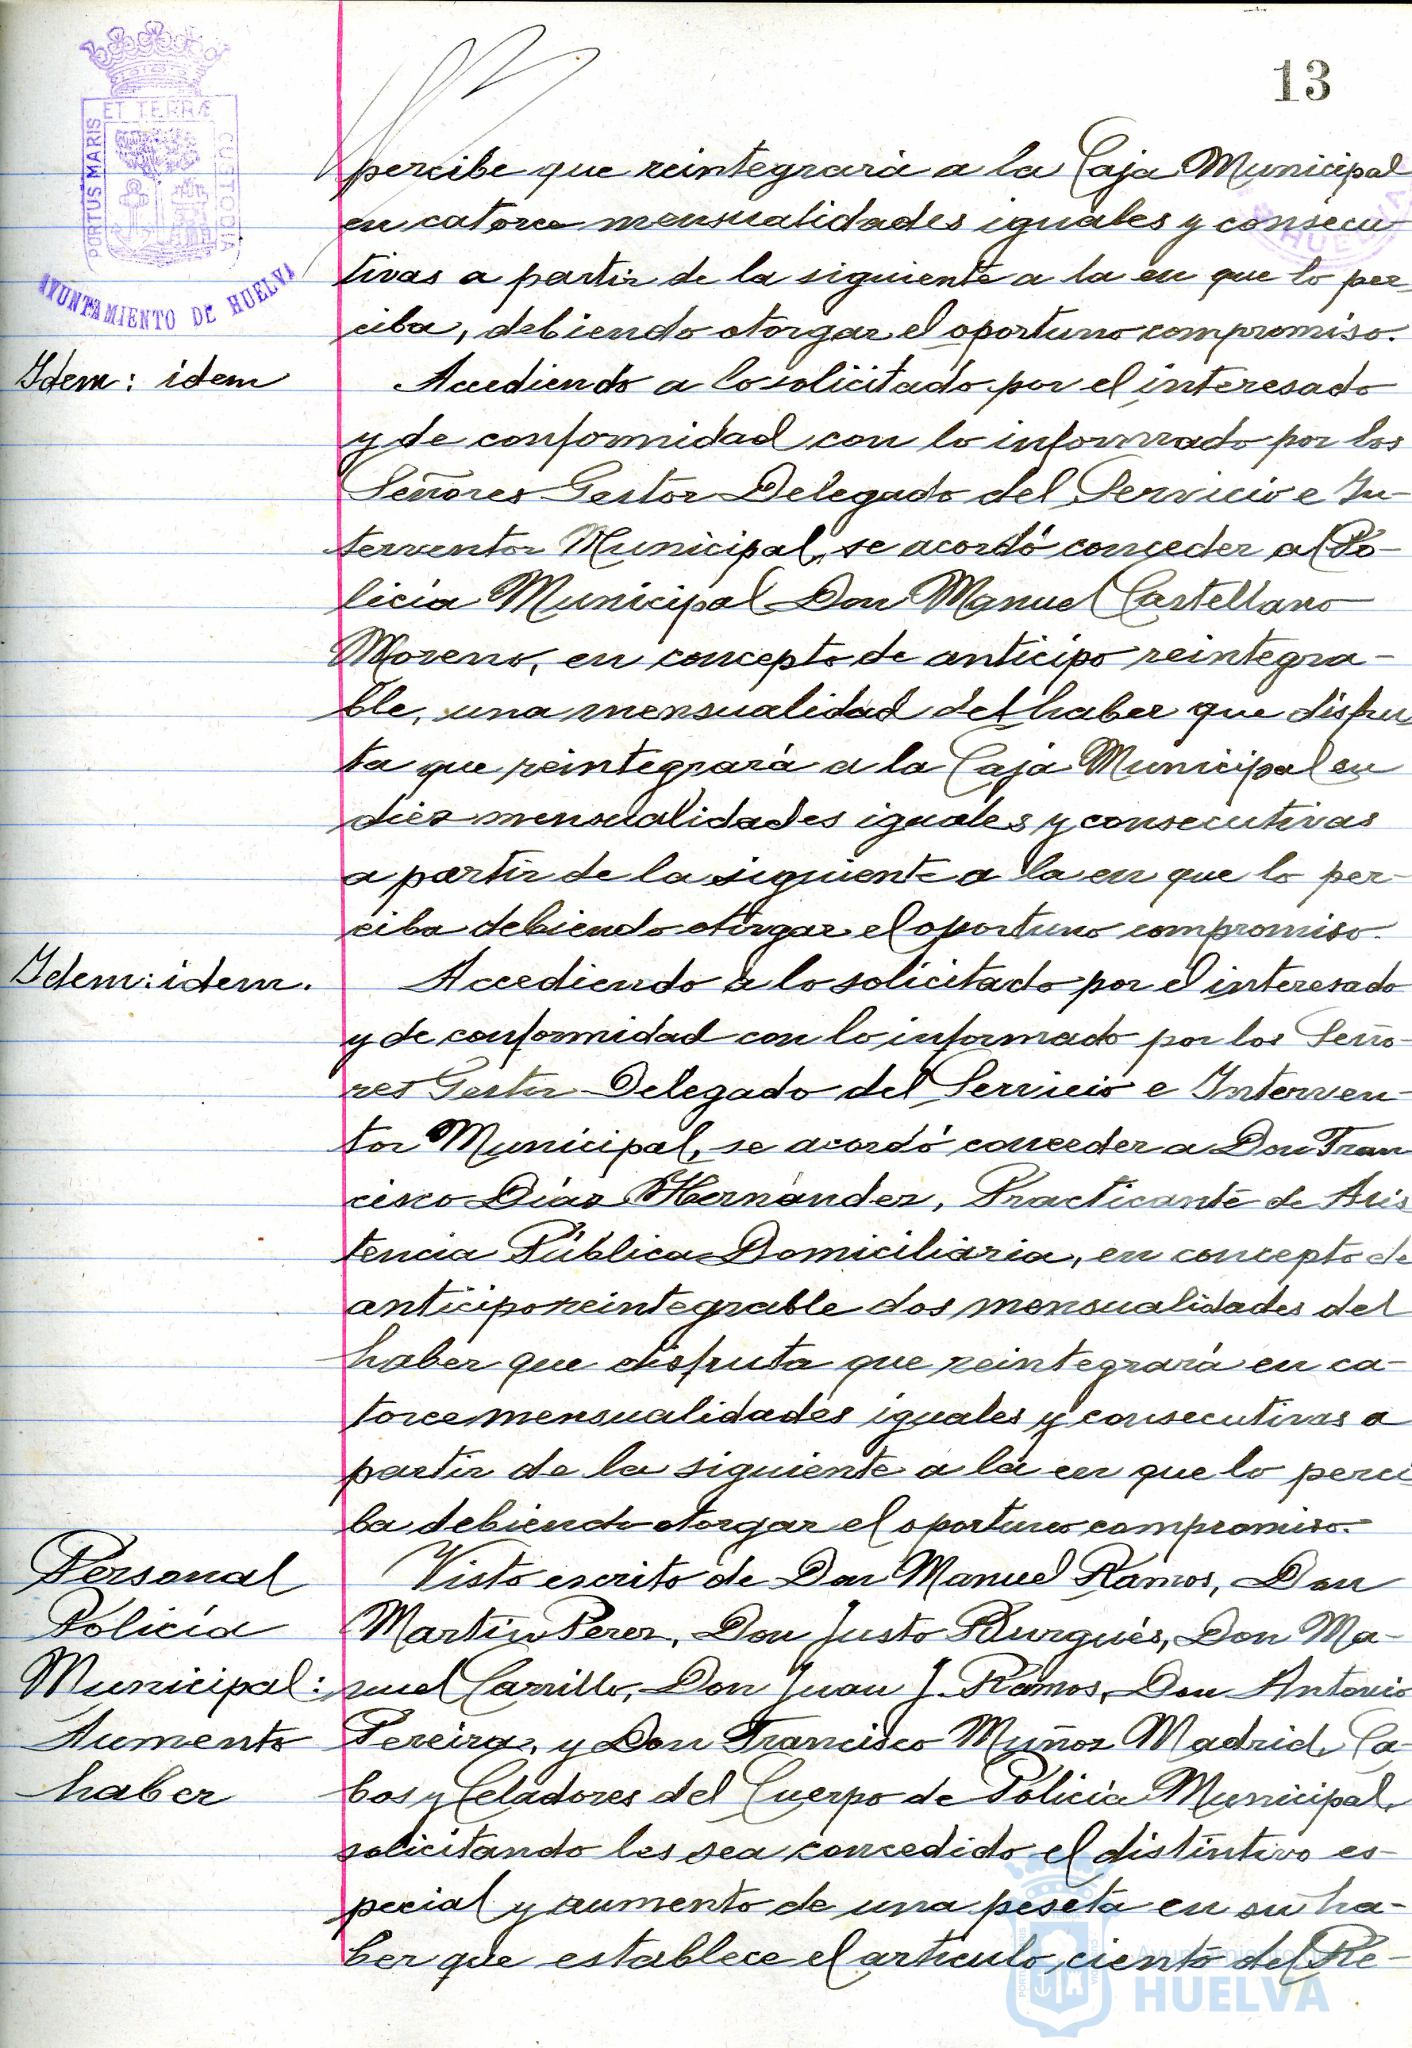 13
PORTUS MARIS
ET TERRÆ
CUSTODIA
AYUNTAMIENTO DE HUELVA
HUELVA
percibe que reintegrará a la Caja Municipal
en catorce mensualidades iguales y consecu-
tivas a partir de la siguiente a la en que lo per-
ciba, debiendo otorgar el oportuno compromiso.
Idem: idem
Accediendo a lo solicitado por el interesado
y de conformidad con lo informado por los
Señores Gestor Delegado del Servicio e In-
terventor Municipal, se acordó conceder al Po-
licia Municipal Don Manuel Castellano
Moreno, en concepto de anticipo reintegra-
ble, una mensualidad del haber que disfru
ta que reintegrará a la Caja Municipal en
diez mensualidades iguales y consecutivas
a partir de la siguiente a la en que lo per-
ciba debiendo otorgar el oportuno compromiso.
Idem: idem.
Accediendo a lo solicitado por el interesado
y de conformidad con lo informado por los Seño-
res Gestor Delegado del Servicio e Interven-
tor Municipal, se acordó conceder a Don Fran
cisco Díaz Hernández, Practicante de Asis
tencia Pública Domiciliaria, en concepto de
anticipo reintegrable dos mensualidades del
haber que disfruta que reintegrará en ca-
torce mensualidades iguales y consecutivas a
partir de la siguiente a la en que lo perci
ba debiendo otorgar el oportuno compromiso.
Personal
Policía
Municipal:
Aumento
haber
Visto escrito de Don Manuel Ramos, Don
Martín Perez, Don Justo Burgués, Don Ma-
nuel Carrillo, Don Juan J. Ramos, Don Antonio
Pereira, y Don Francisco Muñoz Madrid, Ca-
bos y Celadores del Cuerpo de Policía Municipal,
solicitando les sea concedido el distintivo es-
pecial y aumento de una peseta en su ha-
ber que establece el artículo ciento del Re-
Ayuntamiento de
HUELVA